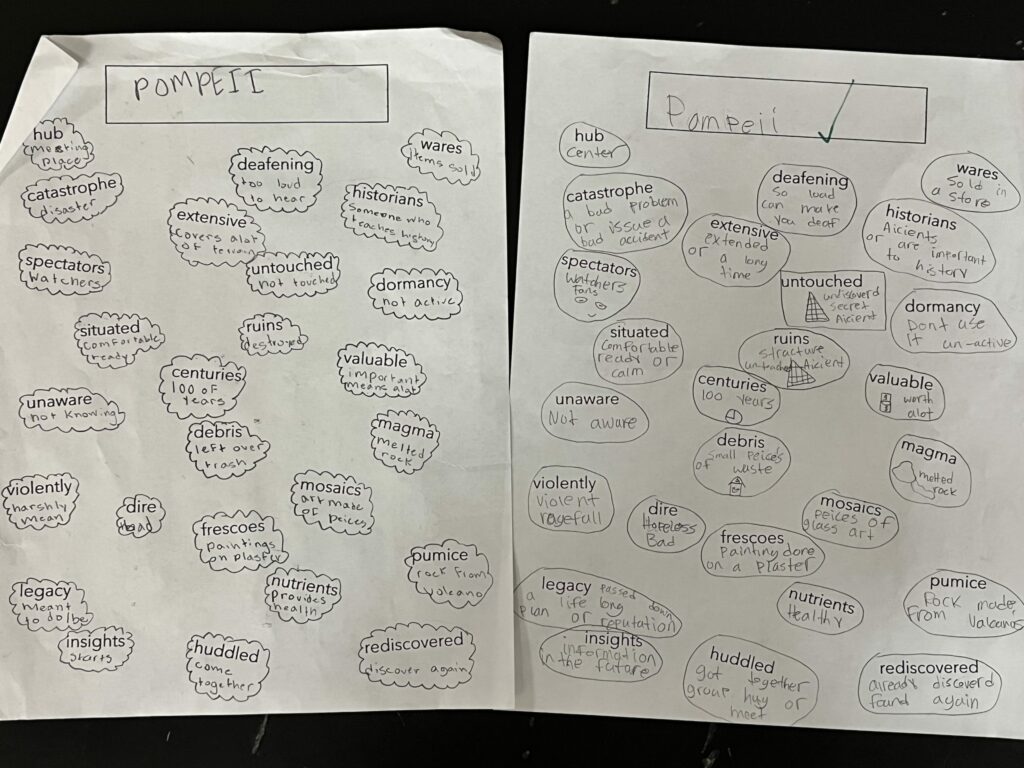 POMPEII
hub
meeting
place
wares
items sold
deafening
too loud
to hear
catastrophe
disaster
historians
Someone who
teaches history
extensive
Covers alot
of terrain
spectators
Watchers
untouched
not touched
dormancy
not active
situated
Comfortable
ready
ruins
destroyed
valuable
important
means alot
centuries
100 of
years
unaware
not knowing
magma
melted
rock
debris
left over
trash
violently
harshly
mean
dire
mosaics
art made
of peices
frescoes
paintings
on plaster
pumice
rock from
volcano
nutrients
provides
health
legacy
meant
to do/be
insights
starts
huddled
come
together
rediscovered
discover again
Pompeii
hub
Center
wares
Sold in
a store
deafening
So load
can make
you deaf
catastrophe
a bad problem
or issue a
bad accident
historians
Aicients
or are important
to history
extensive
extended
or a long
time
spectators
Watchers
Fans
untouched
undiscoverd
secret
Aicient
dormancy
Dont use
it un-active
situated
Comfortable
ready or
calm
ruins
structure
Aicient
valuable
worth
alot
centuries
100 years
unaware
Not aware
debris
small peices
of waste
magma
melted
rock
violently
violent
ragefall
dire
Hopeless
Bad
mosaics
peices of
glass art
frescoes
Painting done
on a plaster
legacy passed down
a life long
plan or reputation
nutrients
Healthy
pumice
Rock made
From Valcanos
insights
information
in the future
huddled
got together
group hug or
meet
rediscovered
already discoverd
found again